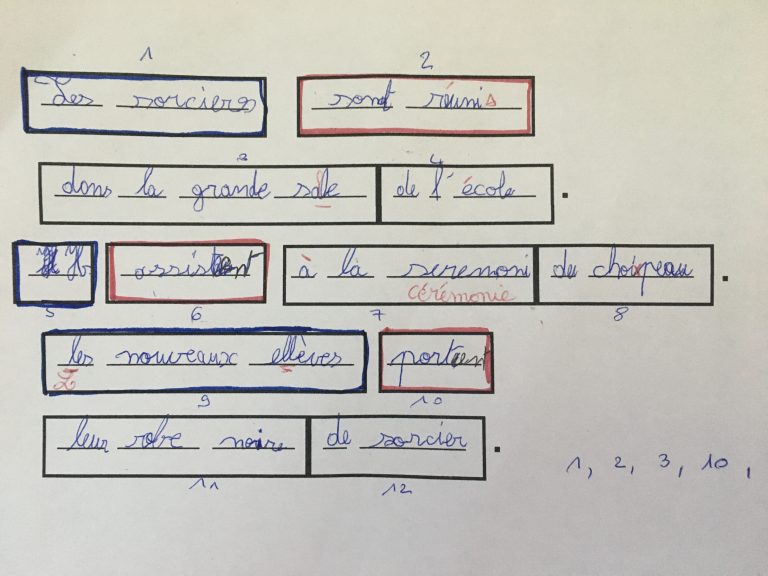 1 2
Les sorciers sont réunis
3 4
dans la grande sale de l'école.
Ils assistent à la seremoni du choixpeau.
cérémonie
5 6 7 8
les nouveaux ellèves portent
L
9 10
leur robe noire de sorcier.
11 12
1, 2, 3, 10,